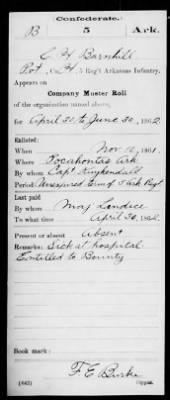 Confederate.
B 5 Ark.
C H Barnhill
Pvt, Co. H, 5 Reg't Arkansas Infantry.
Appears on
Company Muster Roll
of the organization named above,
for April 30 to June 30, 1862.
Enlisted:
When Nov 12, 1861.
Where Pocahontas Ark
By whom Capt Kuykendall
Period Unexpired term of 7 Ark Regt
Last paid:
By whom Maj
To what time April 30, 1862.
Present or absent Absent
Remarks: Sick at hospital
Entitled to Bounty
Book mark:
F. E. Burke
(642) Copyist.